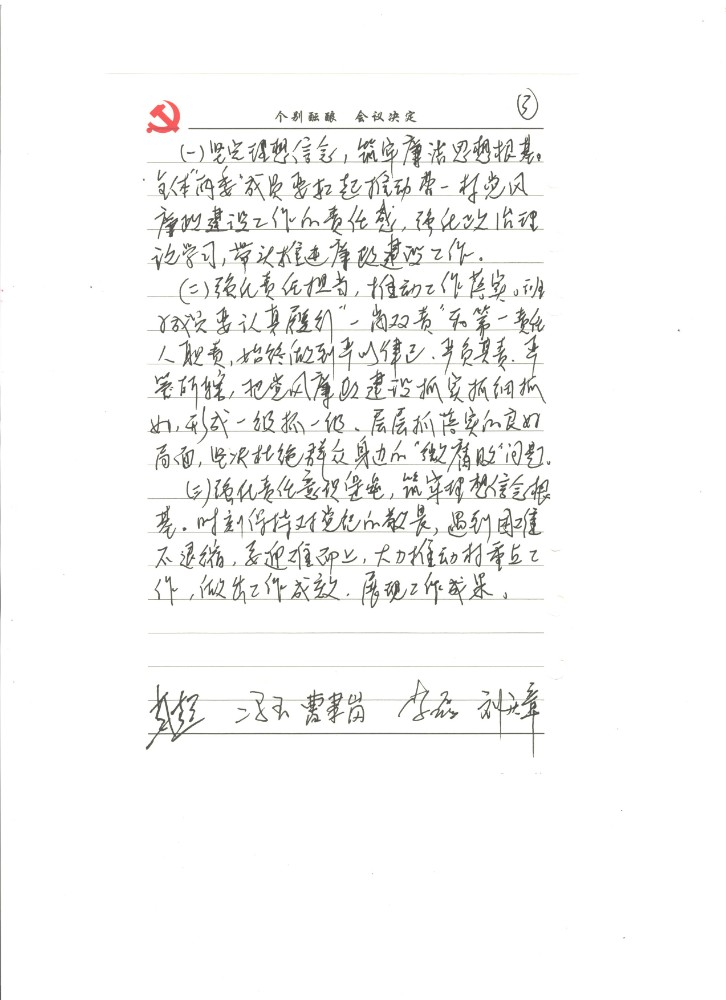 ③
个别酝酿 会议决定
(一)坚定理想信念，筑牢廉洁思想根基。
全体"两委"成员要扛起推动曹一村党风
廉政建设工作的责任感，强化政治理
论学习，带头推进廉政建设工作。
(二)强化责任担当，推动工作落实。班
子成员要认真履行"一岗双责"和第一责任
人职责，始终做到率以律己、率负其责、率
管所辖，把党风廉政建设抓实抓细抓
好，形成一级抓一级、层层抓落实的良好
局面，坚决杜绝群众身边的"微腐败"问题。
(三)强化责任意识堡垒，筑牢理想信念根
基。时刻保持对党纪的敬畏，遇到困难
不退缩，要迎难而上，大力推动村重点工
作，做出工作成效、展现工作成果。
冯玉 曹聿岗 李磊 刘文章